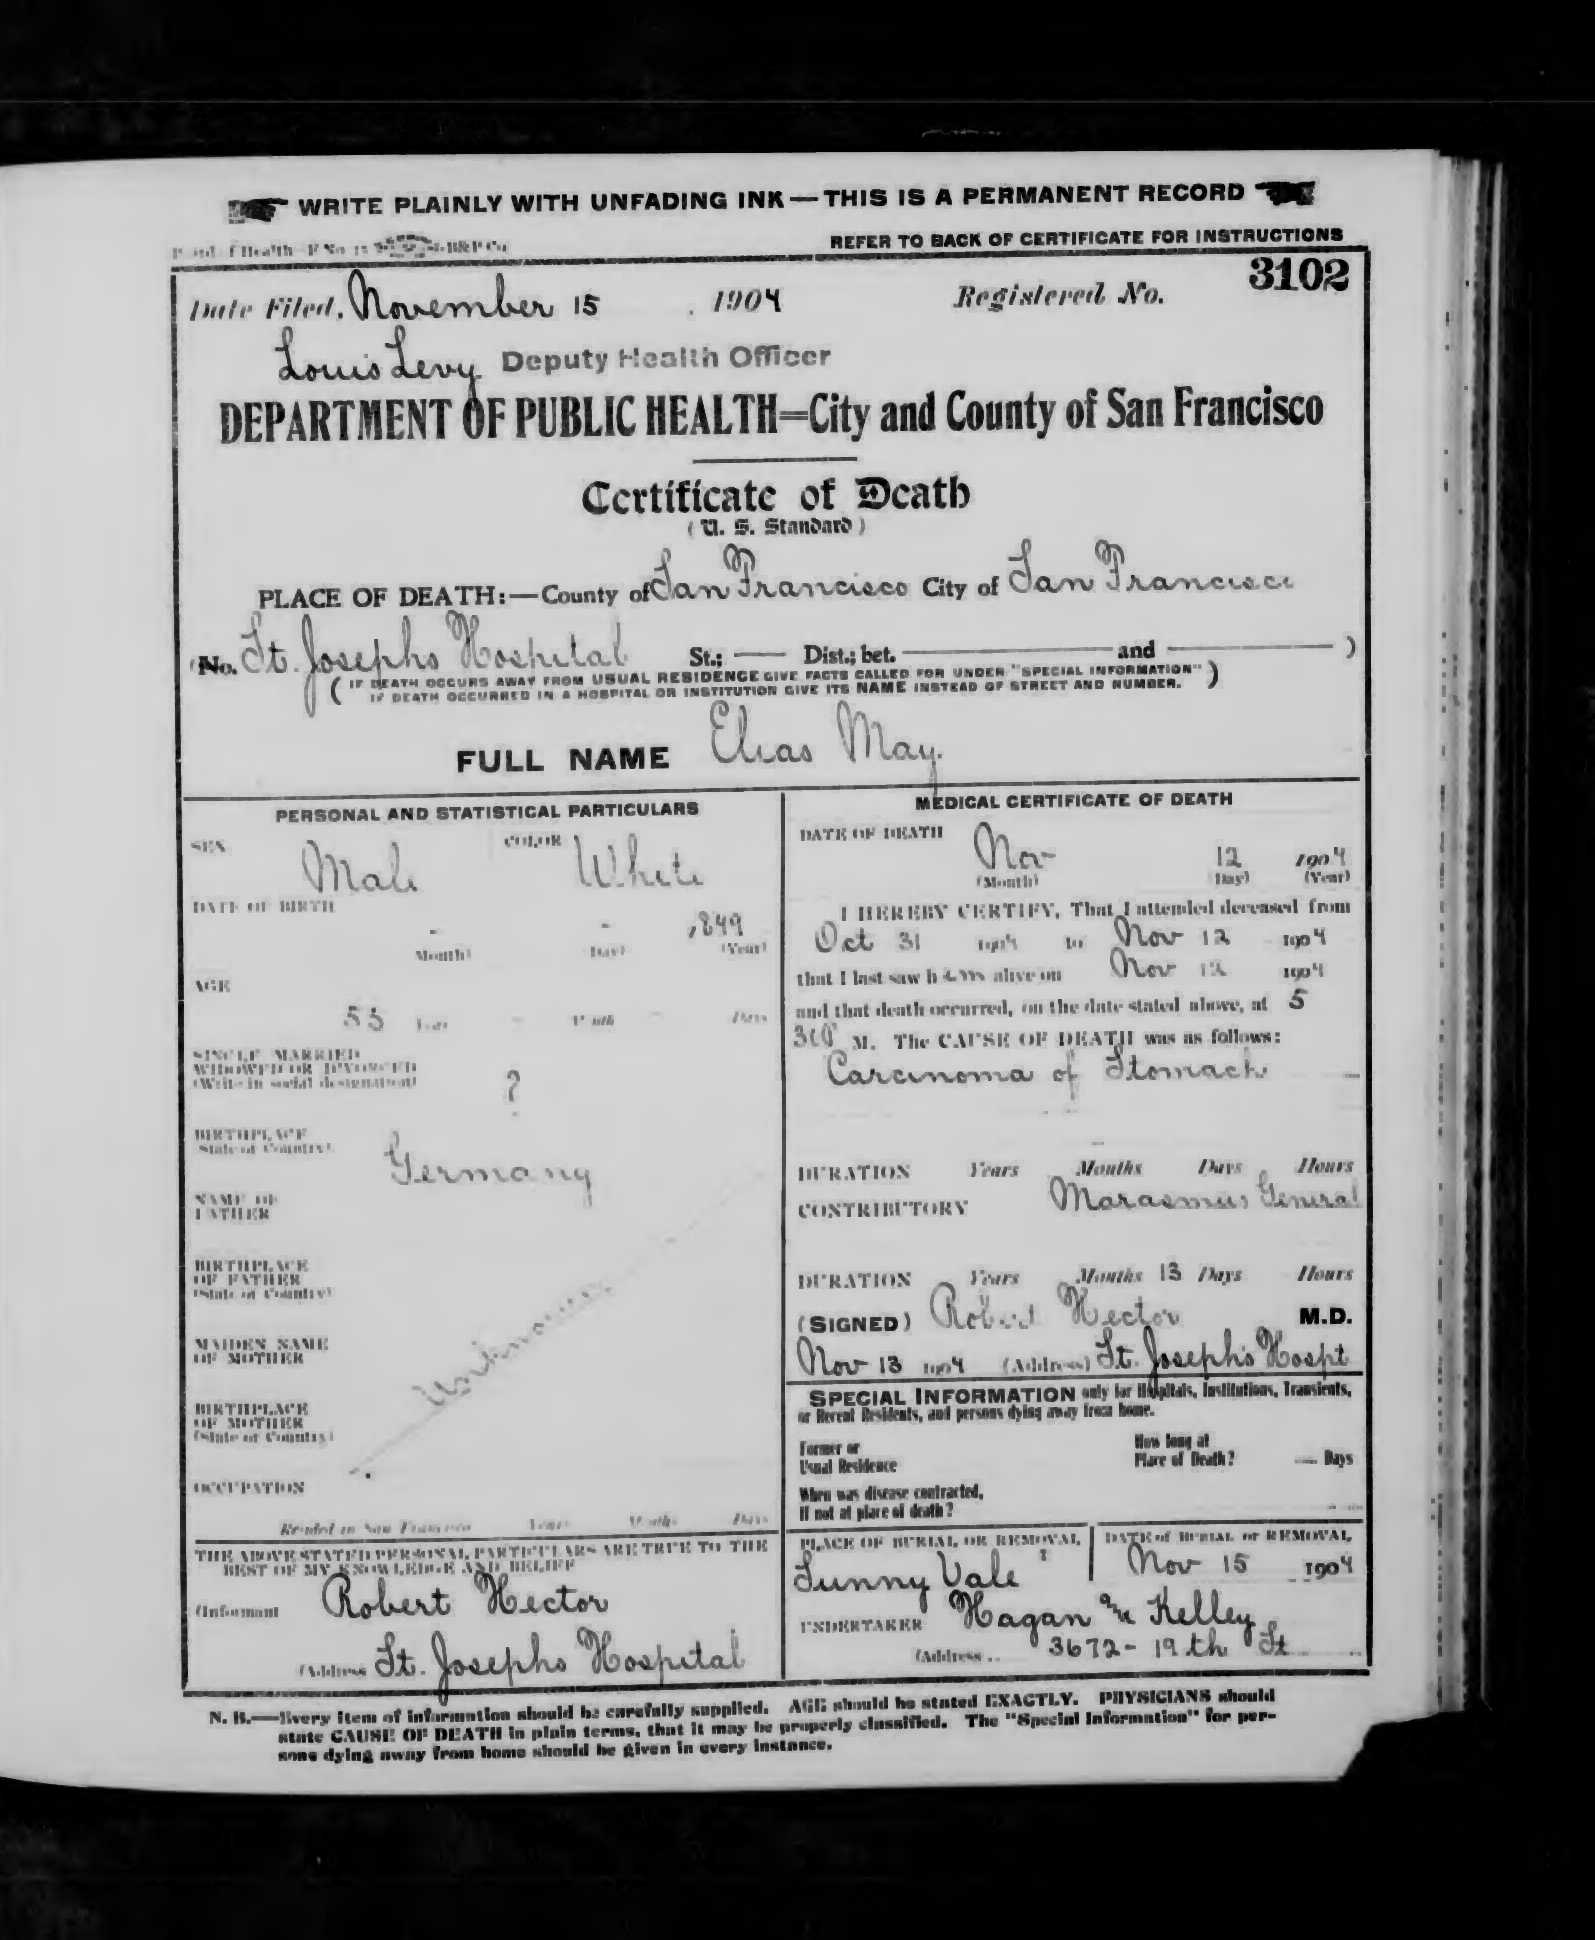 WRITE PLAINLY WITH UNFADING INK — THIS IS A PERMANENT RECORD
REFER TO BACK OF CERTIFICATE FOR INSTRUCTIONS
Date Filed, November 15, 1904 Registered No. 3102
Louis Levy Deputy Health Officer
DEPARTMENT OF PUBLIC HEALTH=City and County of San Francisco
Certificate of Death
(U. S. Standard)
PLACE OF DEATH:—County of San Francisco City of San Francisco
(No. St. Josephs Hospital St.; — Dist.; bet. — and — )
( IF DEATH OCCURS AWAY FROM USUAL RESIDENCE GIVE FACTS CALLED FOR UNDER "SPECIAL INFORMATION" )
IF DEATH OCCURRED IN A HOSPITAL OR INSTITUTION GIVE ITS NAME INSTEAD OF STREET AND NUMBER.
FULL NAME Elias May.
PERSONAL AND STATISTICAL PARTICULARS
SEX Male COLOR White
DATE OF BIRTH
- - 1849
(Month) (Day) (Year)
AGE
55 Years - Months - Days
SINGLE MARRIED
WIDOWED OR DIVORCED
(Write in social designation) ?
BIRTHPLACE
(State or Country) Germany
NAME OF
FATHER
BIRTHPLACE
OF FATHER
(State or Country)
MAIDEN NAME
OF MOTHER
Unknown
BIRTHPLACE
OF MOTHER
(State or Country)
OCCUPATION
Resided in San Francisco Years Months Days
THE ABOVE STATED PERSONAL PARTICULARS ARE TRUE TO THE
BEST OF MY KNOWLEDGE AND BELIEF
(Informant Robert Hector
(Address St. Josephs Hospital
MEDICAL CERTIFICATE OF DEATH
DATE OF DEATH
Nov 12 1904
(Month) (Day) (Year)
I HEREBY CERTIFY, That I attended deceased from
Oct 31 1904 to Nov 12 1904
that I last saw him alive on Nov 12 1904
and that death occurred, on the date stated above, at 5
M. The CAUSE OF DEATH was as follows:
Carcinoma of Stomach
DURATION Years Months Days Hours
CONTRIBUTORY Marasmus General
DURATION Years Months 13 Days Hours
(SIGNED) Robert Hector M.D.
Nov 13 1904 (Address) St. Joseph's Hospt
SPECIAL INFORMATION only for Hospitals, Institutions, Transients,
or Recent Residents, and persons dying away from home.
Former or
Usual Residence
How long at
Place of Death? — Days
When was disease contracted,
If not at place of death?
PLACE OF BURIAL OR REMOVAL
Sunny Vale
DATE of BURIAL or REMOVAL
Nov 15 1904
UNDERTAKER Hagan Mc Kelley
(Address 3672 - 19th St
N. B.—Every item of information should be carefully supplied. AGE should be stated EXACTLY. PHYSICIANS should
state CAUSE OF DEATH in plain terms, that it may be properly classified. The "Special Information" for per-
sons dying away from home should be given in every instance.